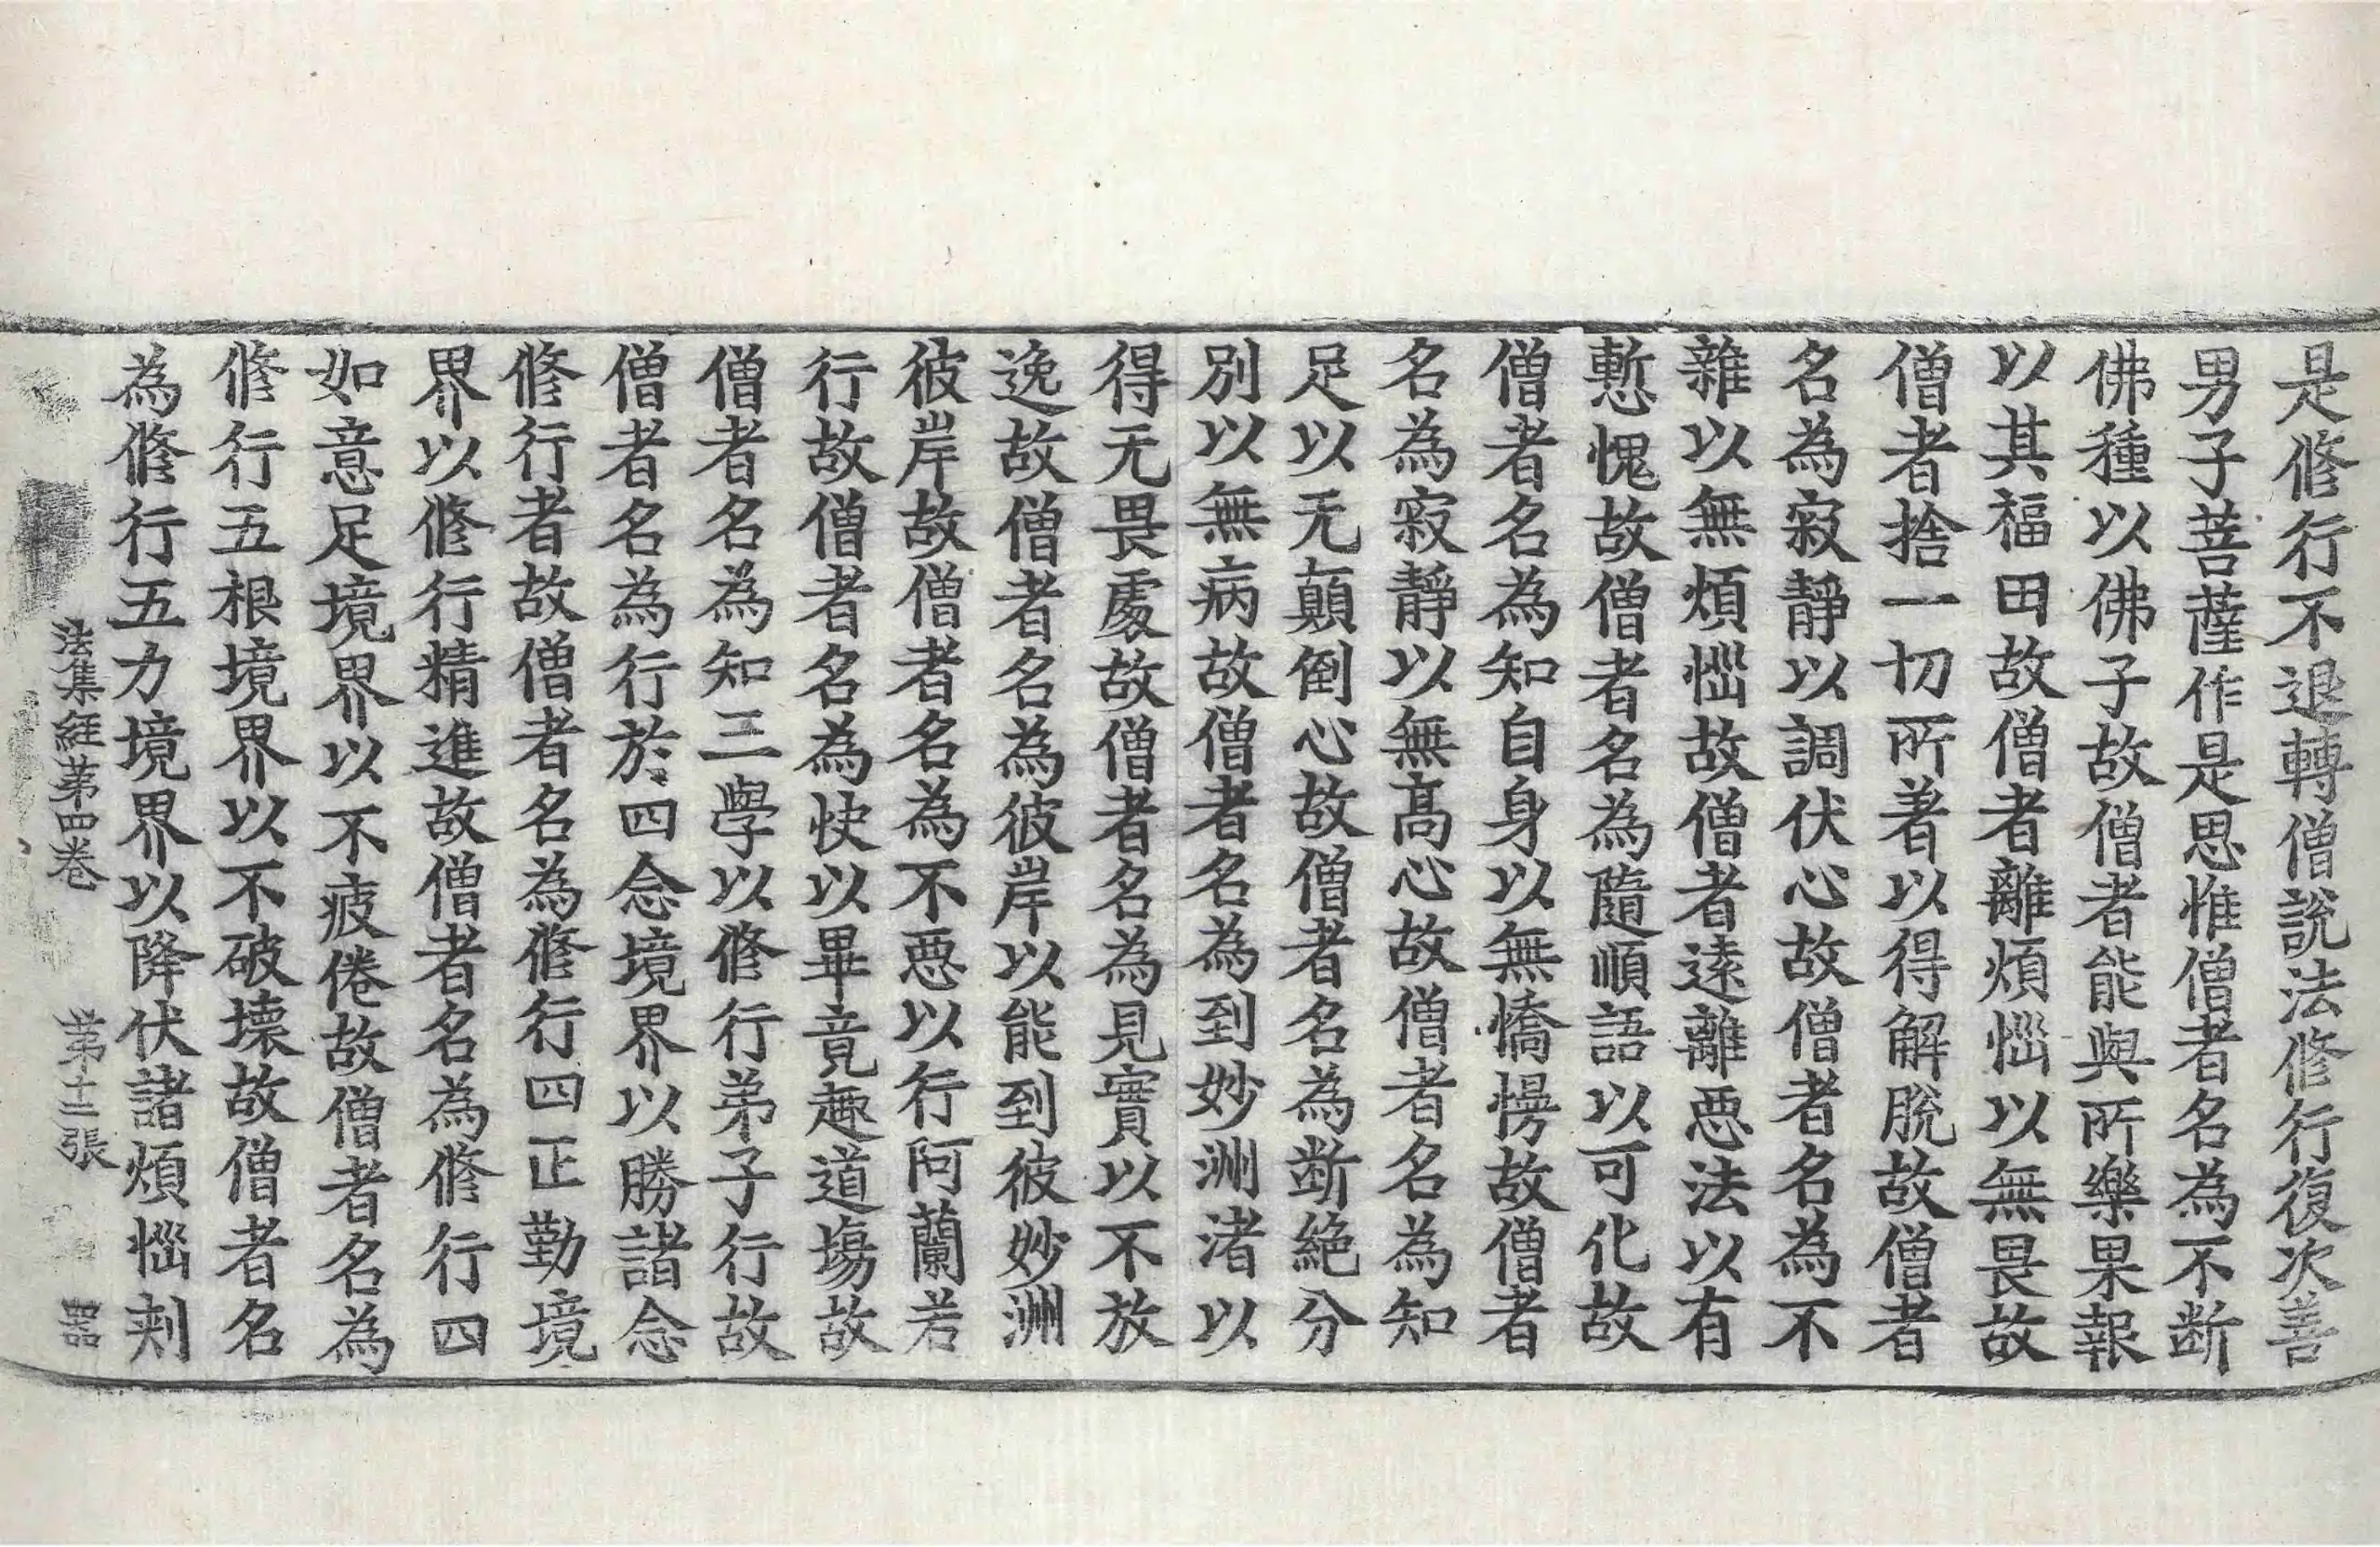 是修行不退轉僧說法修行復次善
男子菩薩作是思惟僧者名為不断
佛種以佛子故僧者能與所樂果報
以其福田故僧者離煩惱以無畏故
僧者捨一切所著以得解脫故僧者
名為寂靜以調伏心故僧者名為不
雜以無煩惱故僧者遠離惡法以有
慙愧故僧者名為隨順語以可化故
僧者名為知自身以無憍慢故僧者
名為寂靜以無髙心故僧者名為知
足以无顛倒心故僧者名為断絕分
別以無病故僧者名為到妙洲渚以
得无畏處故僧者名為見實以不放
逸故僧者名為彼岸以能到彼妙洲
彼岸故僧者名為不惡以行阿蘭若
行故僧者名為快以畢竟趣道場故
僧者名為知三學以修行弟子行故
僧者名為行於四念境界以勝諸念
修行者故僧者名為修行四正勤境
界以修行精進故僧者名為修行四
如意足境界以不疲倦故僧者名為
修行五根境界以不破壞故僧者名
為修行五力境界以降伏諸煩惱刾
法集經第四卷 第十二張 器